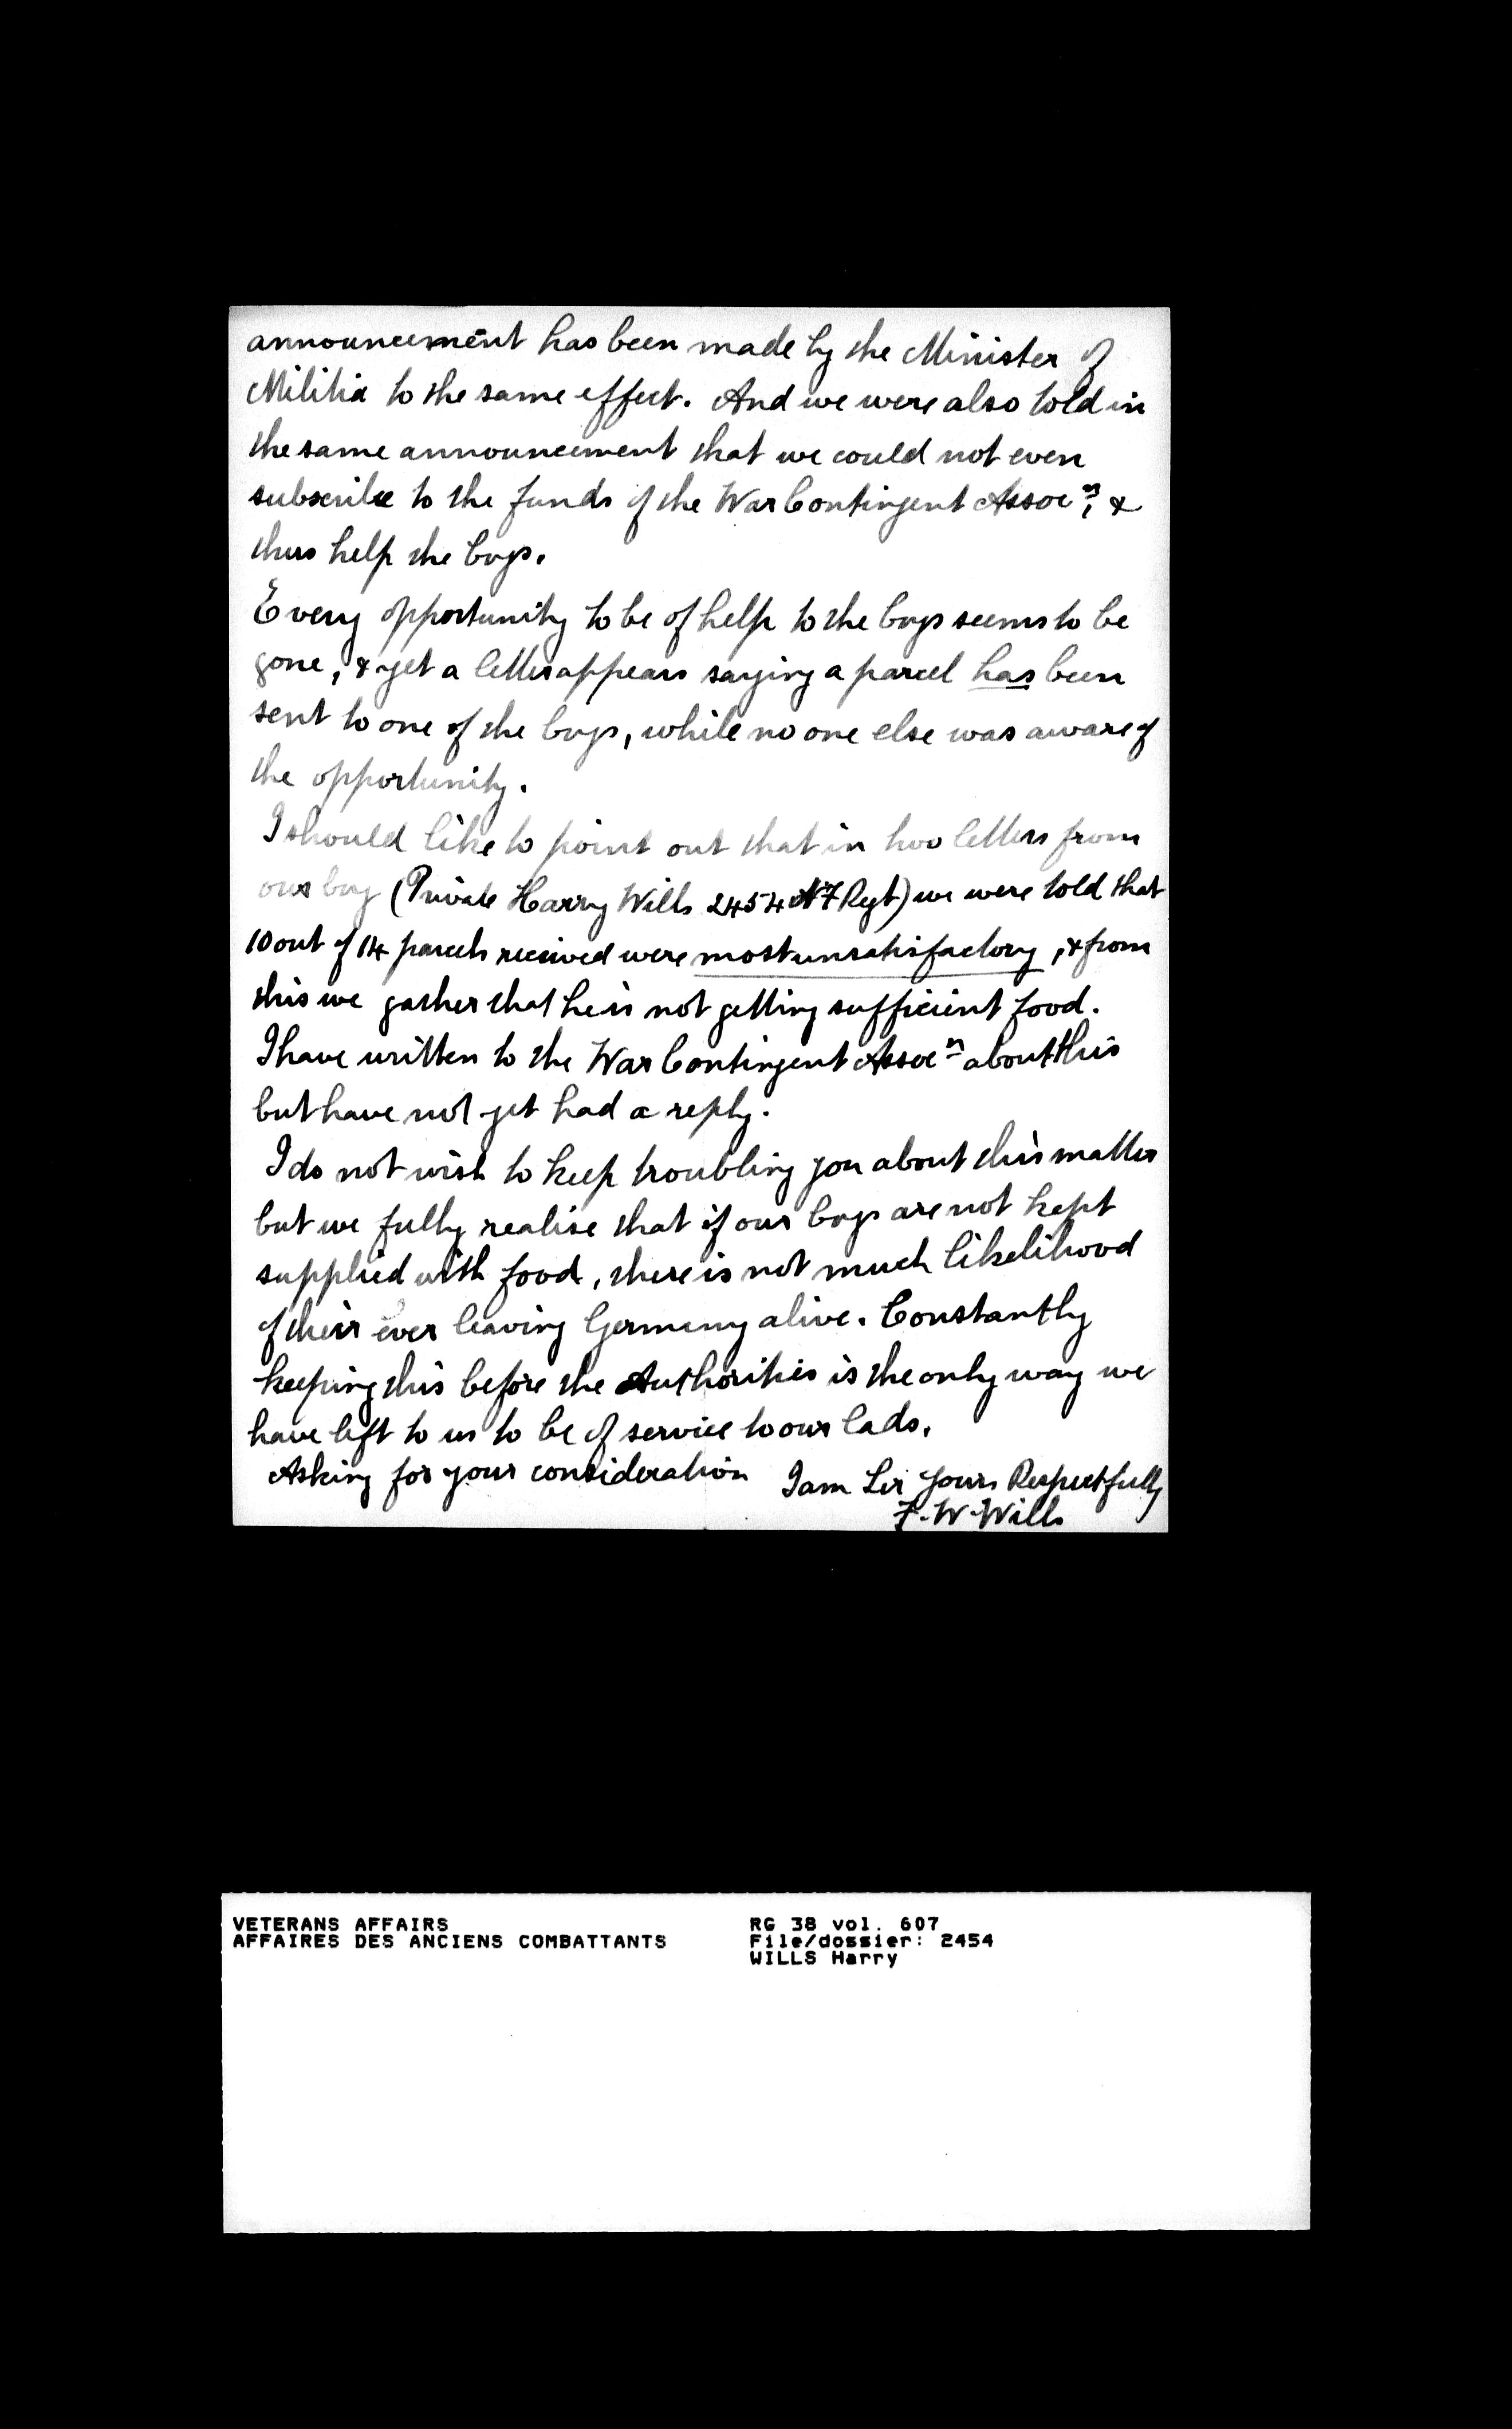 announcement has been made by the Minister of
Militia to the same effect. And we were also told in
the same announcement that we could not even
subscribe to the funds of the War Contingent Assocn, &
thus help the boys.
Every opportunity to be of help to the boys seems to be
gone, & yet a letter appears saying a parcel has been
sent to one of the boys, while no one else was aware of
the opportunity.
I should like to point out that in two letters from
our boy (Private Harry Wills 2454 Nf Regt) we were told that
10 out of 14 parcels received were most unsatisfactory, & from
this we gather that he is not getting sufficient food.
I have written to the War Contingent Assocn about this
but have not yet had a reply.
I do not wish to keep troubling you about this matter
but we fully realise that if our boys are not kept
supplied with food, there is not much likelihood
of their ever leaving Germany alive. Constantly
keeping this before the Authorities is the only way we
have left to us to be of service to our lads.
Asking for your consideration I am Sir Yours Respectfully
F. W. Wills
VETERANS AFFAIRS RG 38 vol. 607
AFFAIRES DES ANCIENS COMBATTANTS File/dossier: 2454
WILLS Harry